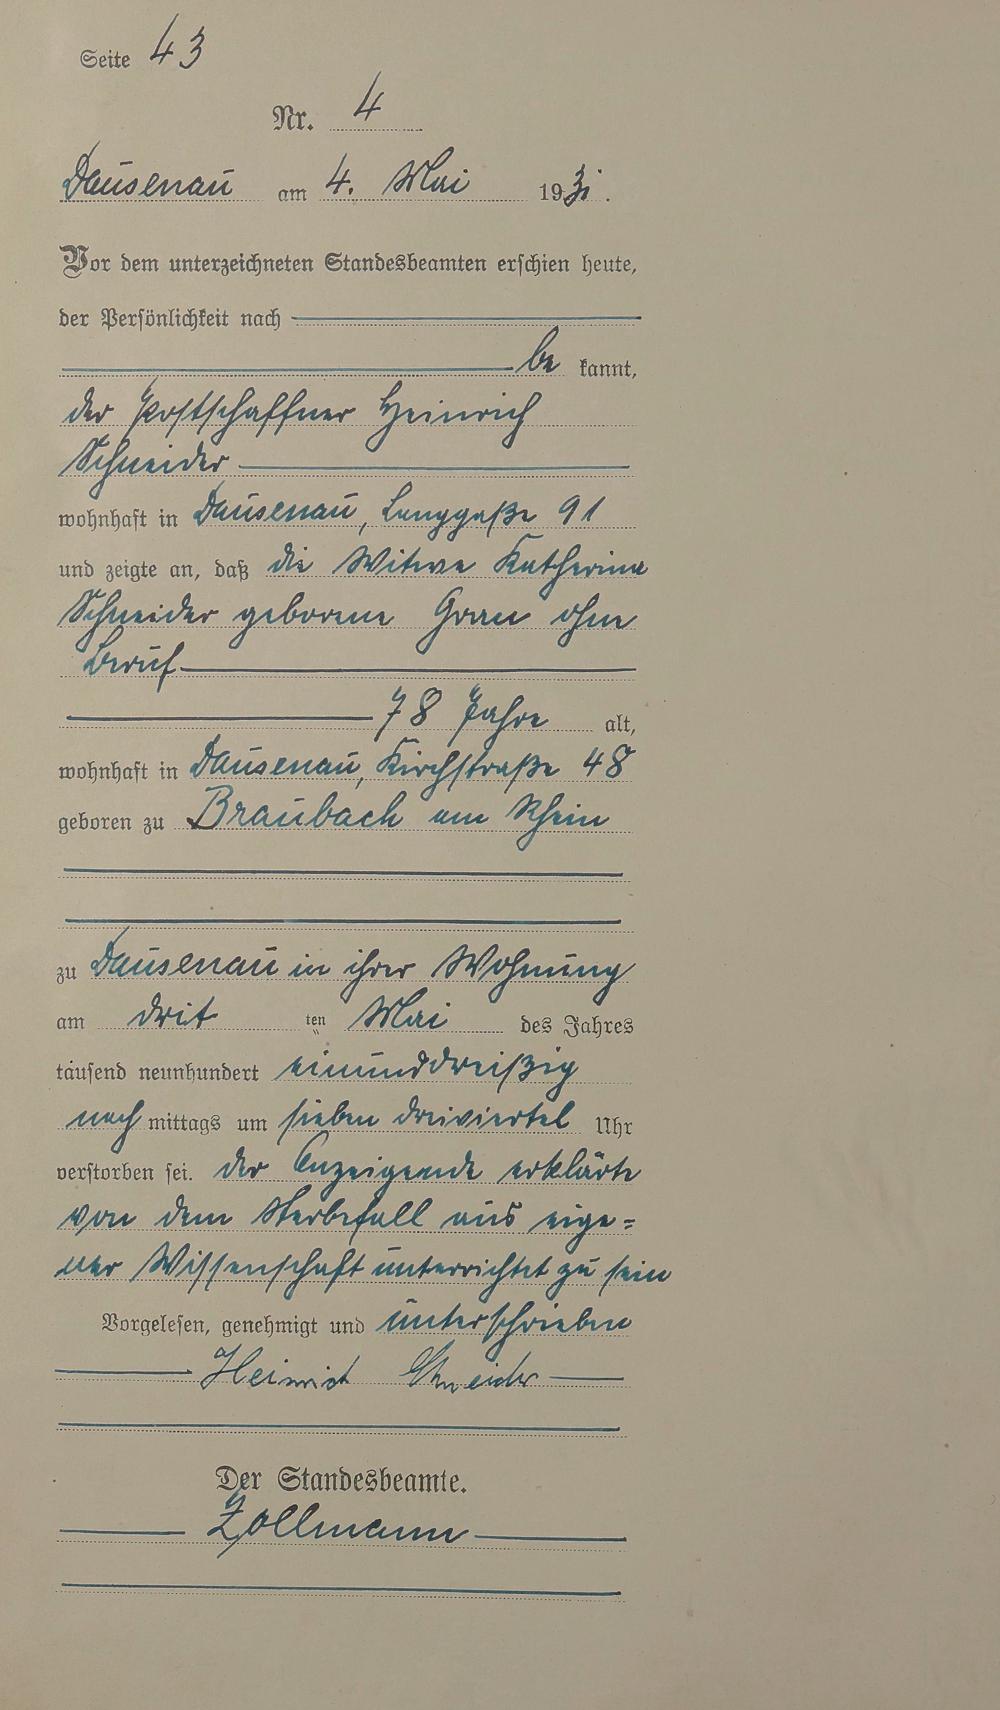 Seite 43
Nr. 4
Dausenau am 4. Mai 1931.
Vor dem unterzeichneten Standesbeamten erschien heute,
der Persönlichkeit nach
be kannt,
der Postschaffner Heinrich
Schneider
wohnhaft in Dausenau, Langgaße 91
und zeigte an, daß die Witwe Katherina
Schneider geborene ohne
Beruf
78 Jahre alt,
wohnhaft in Dausenau, Kirchstraße 48
geboren zu Braubach am Rhein
zu Dausenau in ihrer Wohnung
am drit ten Mai des Jahres
tausend neunhundert einunddreißig
nach mittags um sieben dreiviertel Uhr
verstorben sei. der Anzeigende erklärte
von dem Sterbefall aus eige=
ner Wissenschaft unterrichtet zu sein
Vorgelesen, genehmigt und unterschrieben
Heinrich Schneider
Der Standesbeamte.
Zollmann